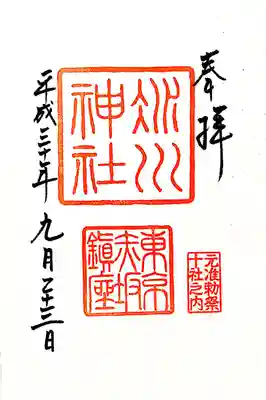 奉拝
氷川
神社
東京
赤坂
鎮座
元准勅祭
十社之内
平成三十年九月二十三日